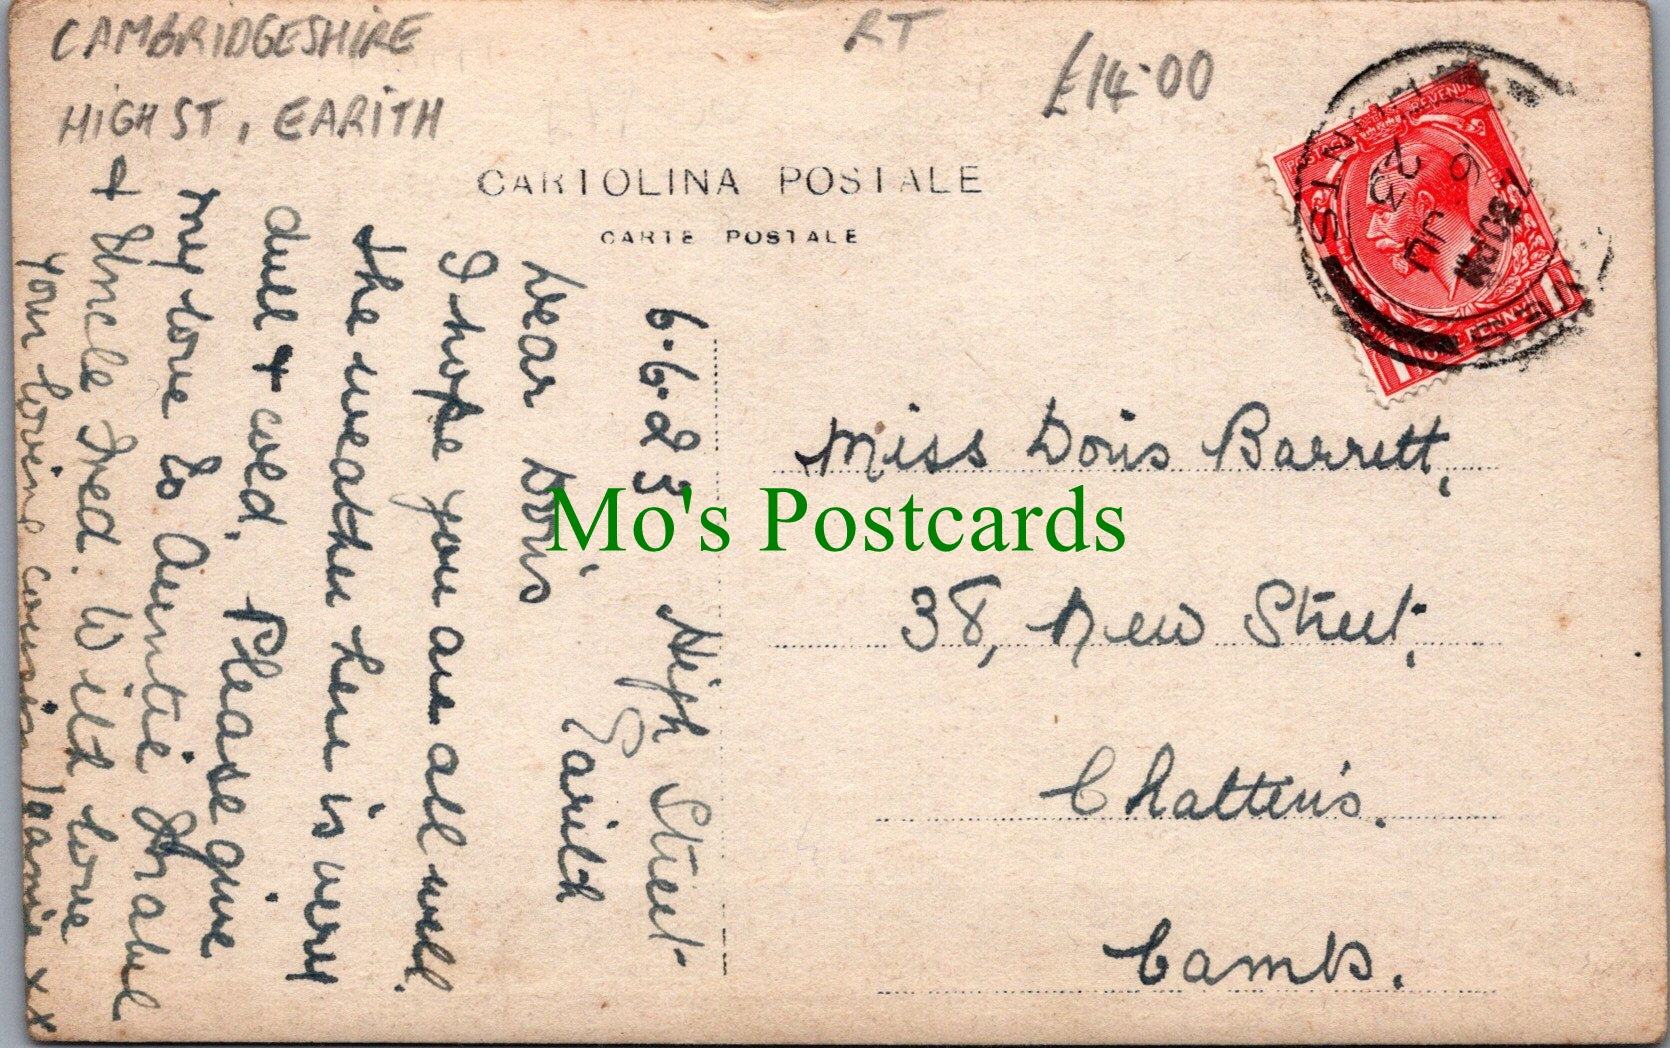 CAMBRIDGESHIRE
HIGH ST, EARITH
RT
£14.00
CARTOLINA POSTALE
CARTE POSTALE
6.6.23 High Street
Earith
Dear Doris
I hope you are all well.
the weather here is very
dull & wed. Please give
my love to Auntie
& Uncle Fred. With love
Your loving cousin xx
Miss Doris Barrett,
38, New Street,
Chatteris.
Cambs.
POSTAGE REVENUE
ONE PENNY
ST. IVES
6 JU
23
Mo's Postcards